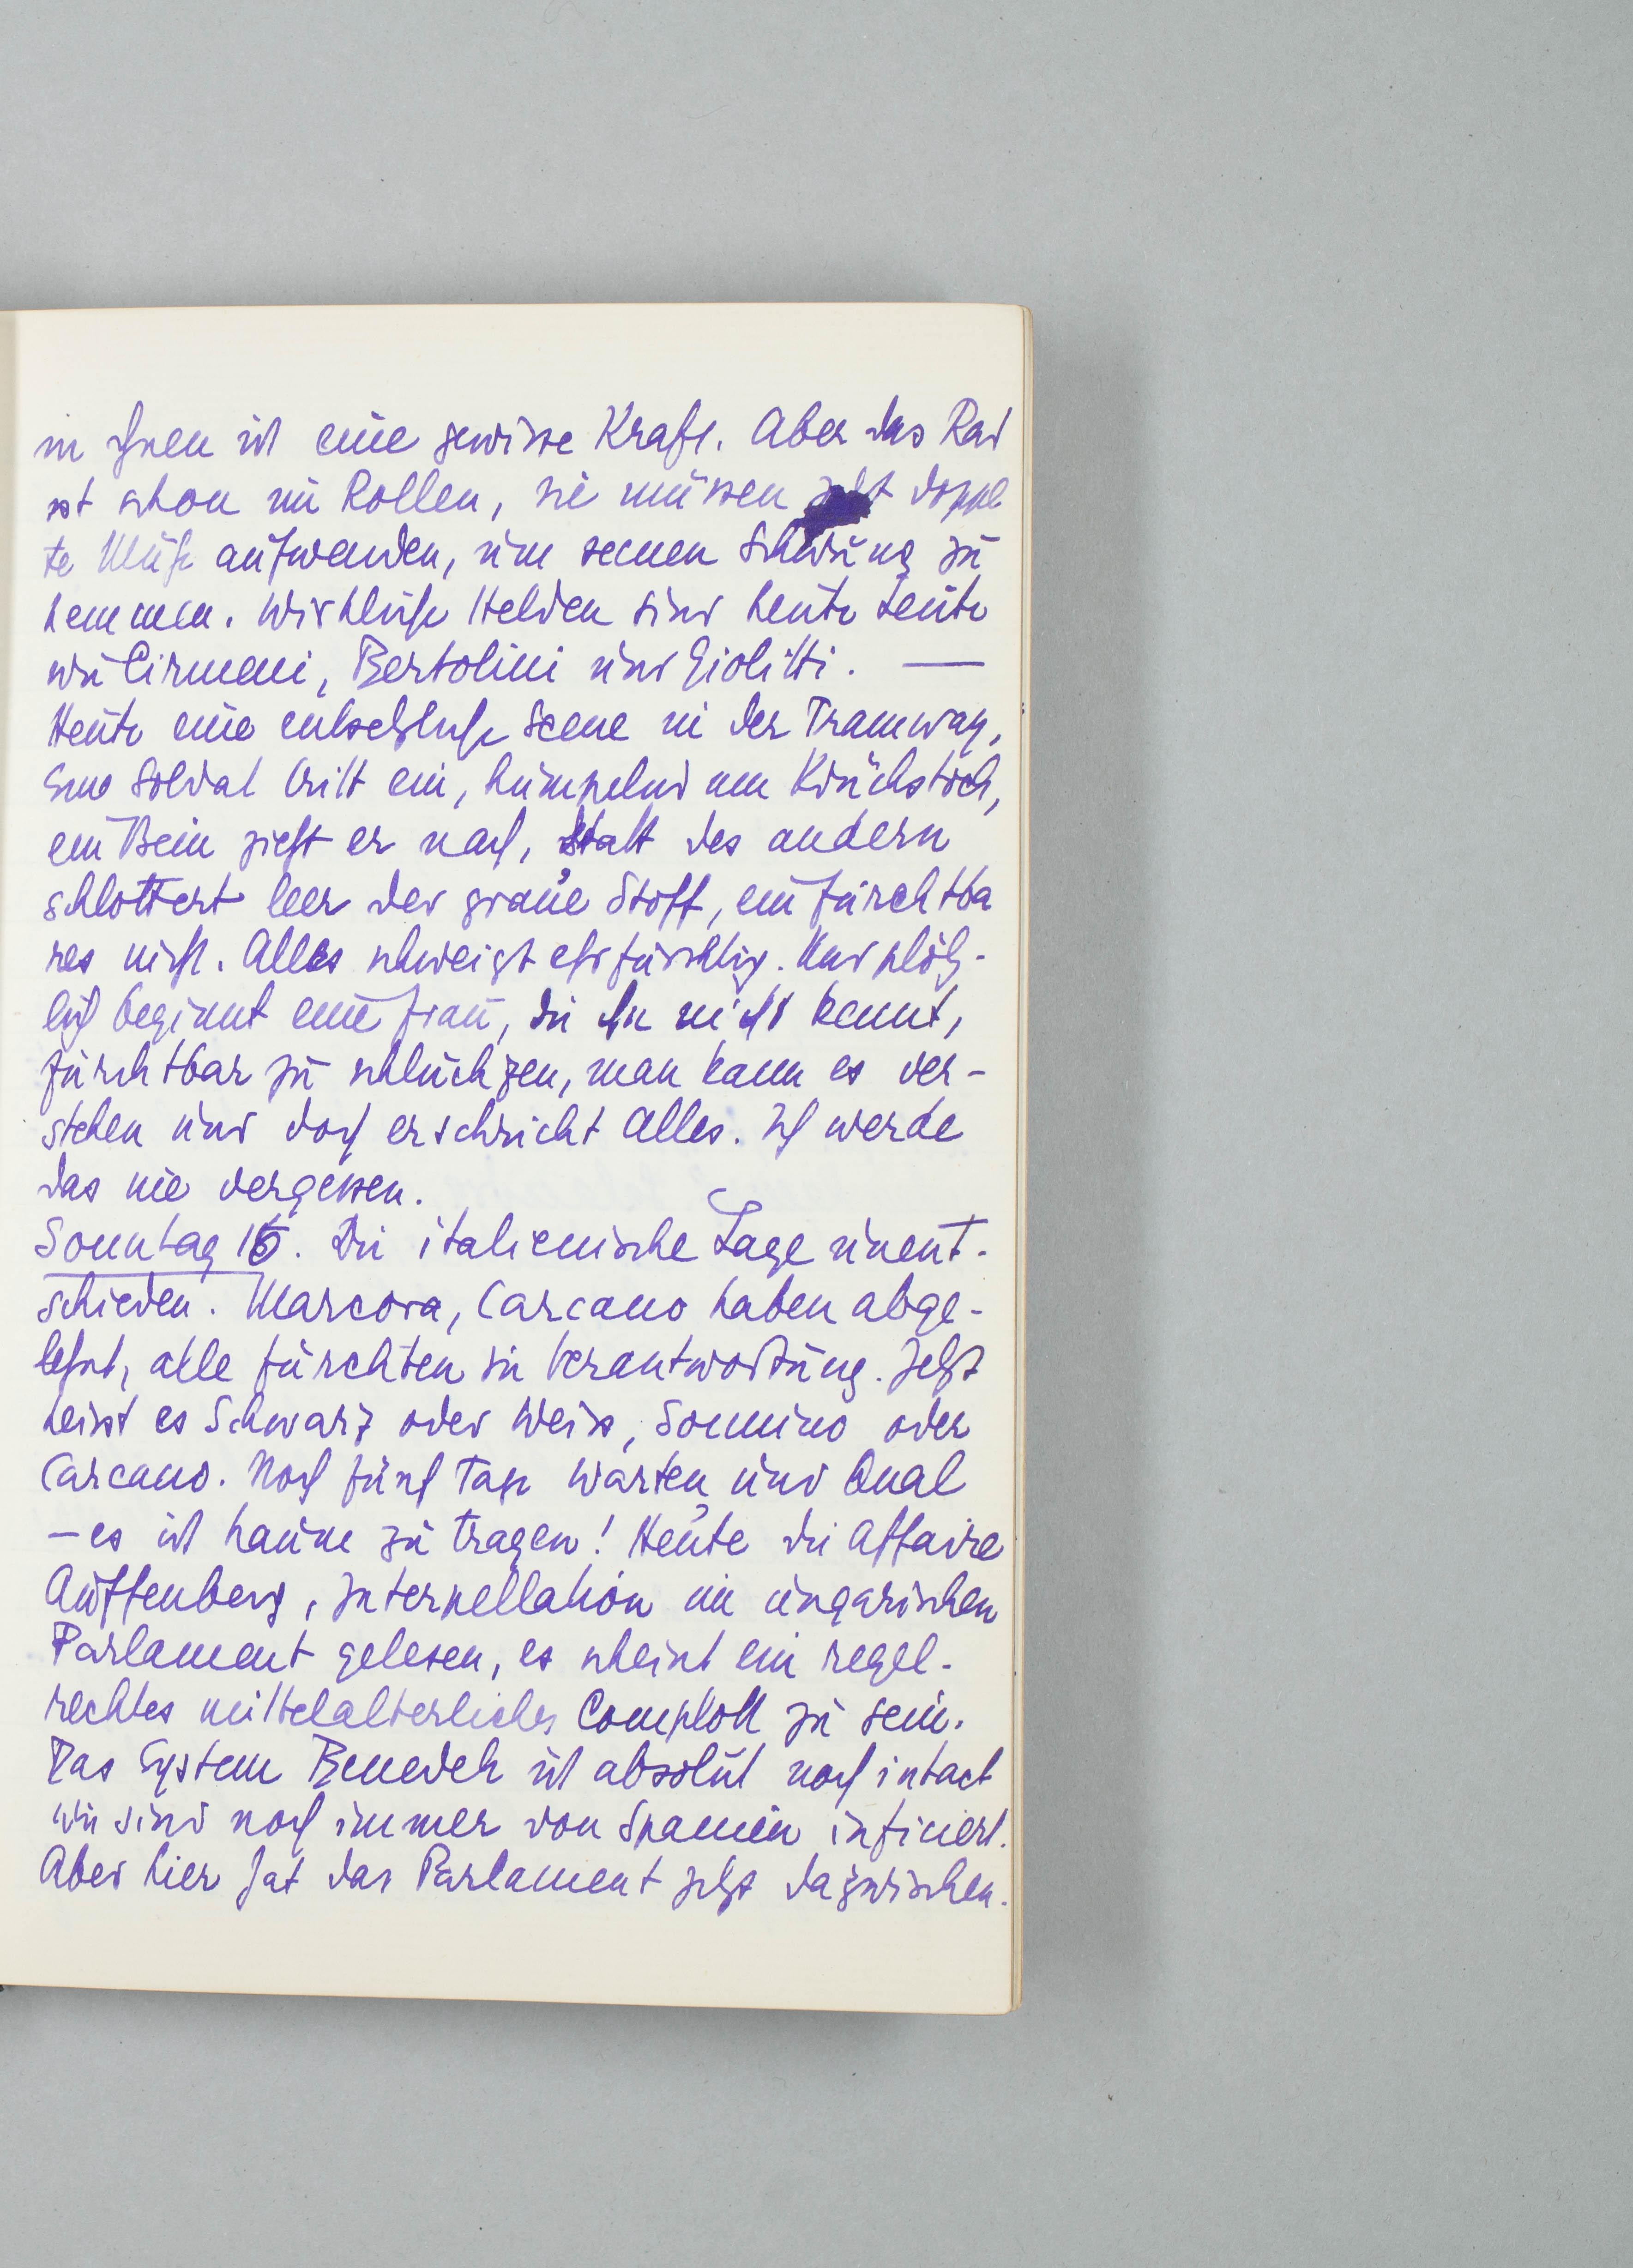 in ihnen ist eine gewisse Kraft. Aber das Rad
ist schon im Rollen, sie müssen jetzt doppel
te Mühe aufwenden, um seinen Schwung zu
hemmen. Wirkliche Helden sind heute Leute
wie Cirmeni, Bertolini und Giolitti. —
Heute eine entsetzliche Scene in der Tramway,
Ein Soldat tritt ein, humpelnd am Krückstock,
ein Bein zieht er nach, statt des andern
schlottert leer der graue Stoff, ein furchtba
res nichts. Alles schweigt ehrfürchtig. Und plötz-
lich beginnt eine Frau, die ihn nicht kennt,
furchtbar zu schluchzen, man kann es ver-
stehen und doch erschrickt Alles. Ich werde
das nie vergessen.
Sonntag 16. Die italienische Lage unent-
schieden. Marcora, Carcano haben abge-
lehnt, alle fürchten die Verantwortung. Jetzt
heisst es Schwarz oder Weiss, Sonnino oder
Carcano. Noch fünf Tage Warten und Qual
– es ist kaum zu tragen! Heute die Affaire
Auffenberg, Interpellation im ungarischen
Parlament gelesen, es scheint ein regel-
rechtes mittelalterliches Complott zu sein.
Das System Benedek ist absolut noch intact
wir sind noch immer von Spanien inficiert.
Aber hier hat das Parlament jetzt dazwischen-